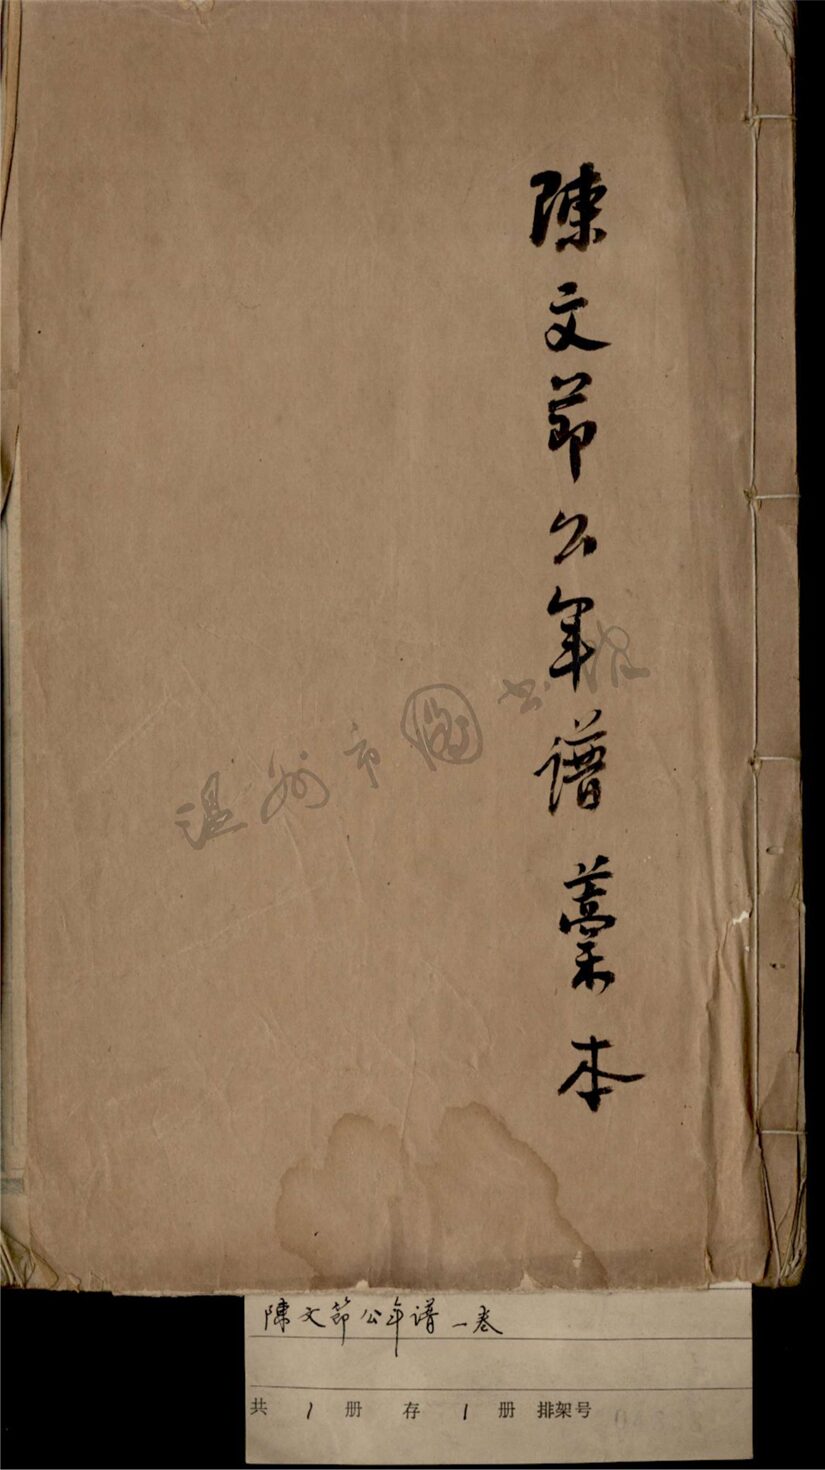 陳文節公年譜藁本
温州市圖书馆
陳文節公年譜一卷
共 1 册 存 1 册 排架号